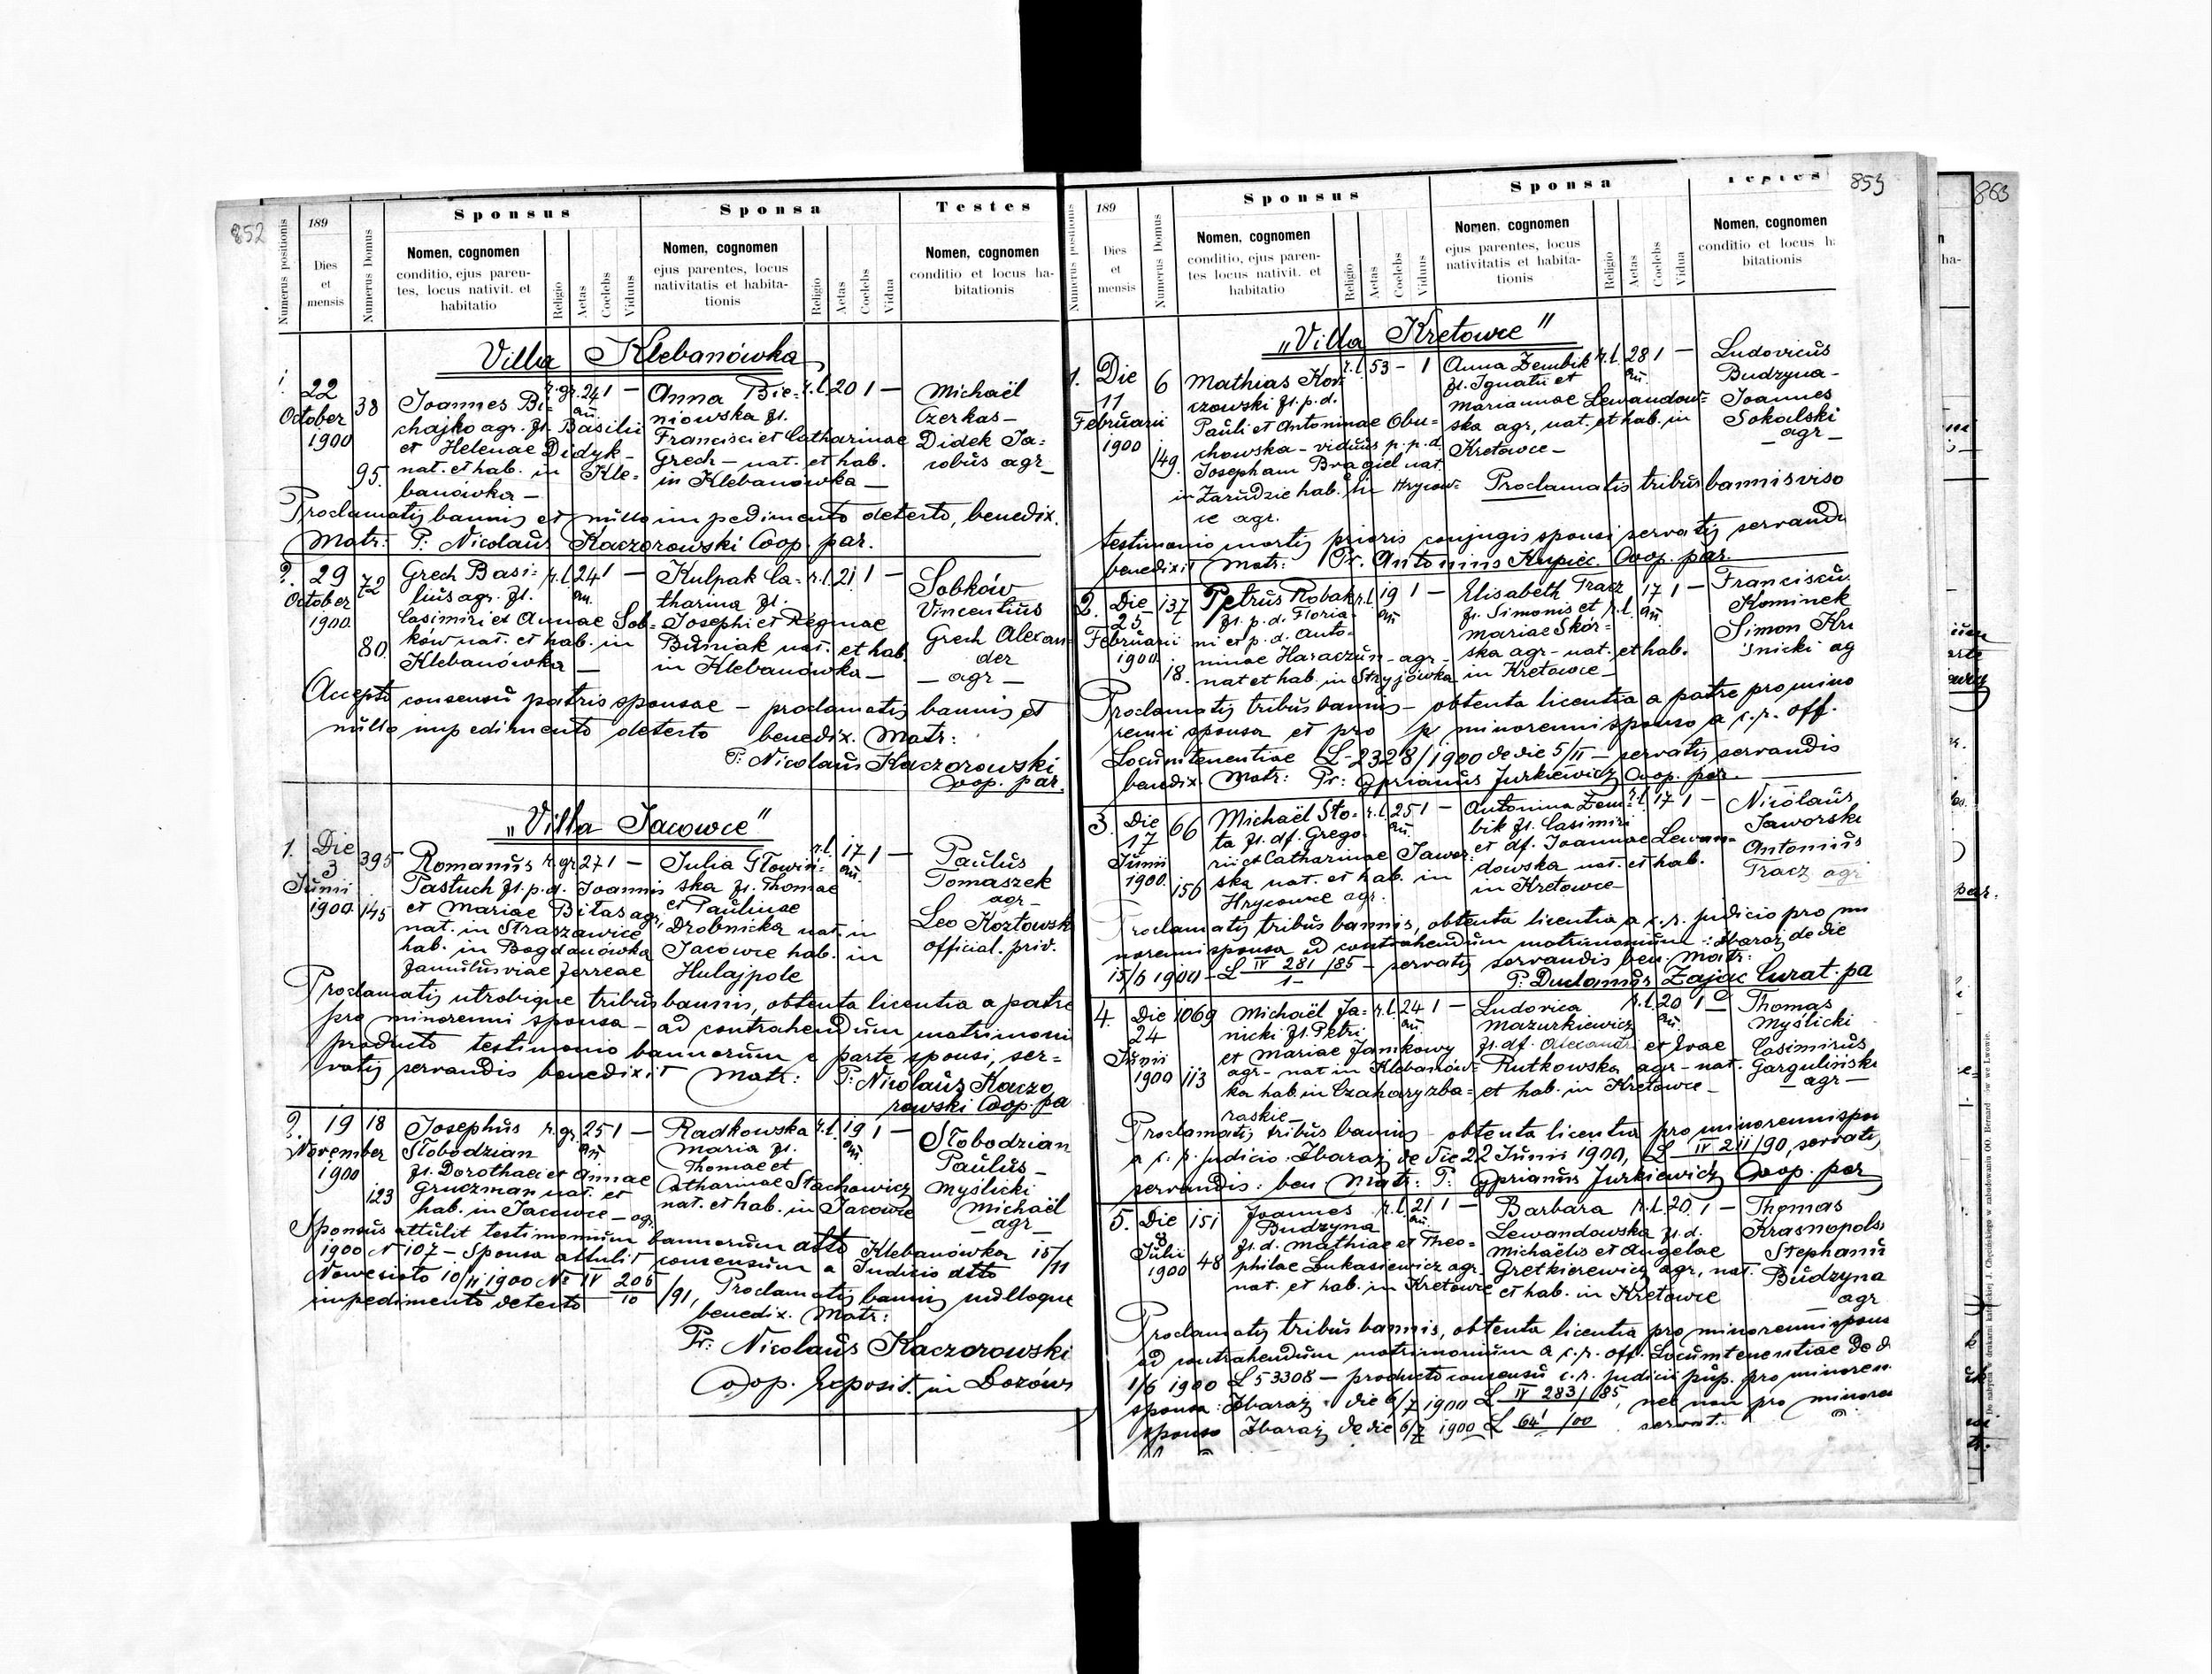 852
189
Sponsus
Sponsa
Testes
Numerus positionis
Dies
et
mensis
Numerus Domus
Nomen, cognomen
conditio, ejus paren-
tes, locus nativit. et
habitatio
Religio
Aetas
Coelebs
Viduus
Nomen, cognomen
ejus parentes, locus
nativitatis et habita-
tionis
Religio
Aetas
Coelebs
Vidua
Nomen, cognomen
conditio et locus ha-
bitationis
Villa Klebanówka
1. 22
October
1900
38
95.
Joannes Bi-
chajko agr. fl. Basilii
et Helenae Didyk-
nat. et hab. in Kle=
banówka -
r.gr. 24 an. 1 -
Anna Bie-
niowska fl.
Francisci et Catharinae
Grech - nat. et hab.
in Klebanówka -
r.l. 20 1 -
Michaël
Czerkas -
Didek Ja=
cobus agr -
Proclamatis bannis et nullo impedimento detecto, benedix.
Matr: P: Nicolaus Kaczorowski Coop. par.
2. 29
October
1900
72
80.
Grech Basi-
lius agr. fl.
Casimiri et Annae Sob=
ków nat. et hab. in
Klebanówka -
r.l. 24 an. 1 -
Kulpak Ca-
tharina fl.
Josephi et Reginae
Buśniak nat. et hab.
in Klebanówka -
r.l. 21 1 -
Sobków
Vincentius
Grech Alexan=
der
- agr -
Accepto consensu patris sponsae - proclamatis bannis et
nullo impedimento detecto benedix. Matr:
P: Nicolaus Kaczorowski
Coop. par.
„Villa Jacowce"
1. Die
3
Junii
1900
395
145
Romanus
Pastuch fl. p.d. Joannis
et Mariae Bilas agr.
nat. in
hab. in Bogdanówka
famulus viae ferreae
r.gr. 27 1 -
Julia Głowiń-
ska fl. Thomae
et Paulinae
Drobnicka nat. in
Jacowce hab. in
Hulajpole
r.l. 17 an. 1 -
Paulus
Tomaszek
agr -
Leo Kozłowsk
official. priv.
Proclamatis utrobique tribus bannis, obtenta licentia a patre
pro minorenni sponsa - ad contrahendum matrimoni
producto testimonio bannorum e parte sponsi, ser=
vatis servandis benedixit Matr: P: Nicolaus Kaczo
rowski Coop. pa
2. 19
November
1900
18
123
Josephus
Słobodzian
fl. Dorothaei et Annae
Gruczman nat. et
hab. in Jacowce - agr.
r.gr. 25 an. 1 -
Radkowska
Maria fl.
Thomae et
Catharinae Stachowicz
nat. et hab. in Jacowce
r.l. 19 an. 1 -
Słobodzian
Paulus -
Myślicki
Michaël
- agr -
Sponsus attulit testimonium bannorum dtto Klebanówka 15/11
1900 N 107 - Sponsa attulit consensum a Judicio dtto
Nowesioło 10/11 1900 N: IV 205/10 /91, Proclamatis bannis nulloque
impedimento detecto benedix. Matr:
Pr: Nicolaus Kaczorowski
Coop. Exposit. in
853
189
Sponsus
Sponsa
Testes
Numerus positionis
Dies
et
mensis
Numerus Domus
Nomen, cognomen
conditio, ejus paren-
tes locus nativit. et
habitatio
Religio
Aetas
Coelebs
Viduus
Nomen, cognomen
ejus parentes, locus
nativitatis et habita-
tionis
Religio
Aetas
Coelebs
Vidua
Nomen, cognomen
conditio et locus h
bitationis
„Villa Kretowce"
1. Die
11
Februarii
1900
6
149.
Mathias Kor-
czowski fl. p.d.
Pauli et Antoninae Obu=
chowska - viduus p. p.d.
Josepham Bragiel nat.
in Zarudzie hab. in Hrycow=
ce agr.
r.l. 53 - 1
Anna Dembik
fl. Ignatii et
Mariannae Lewandow=
ska agr, nat. et hab. in
Kretowce -
r.l. 28 an. 1 -
Ludovicus
Budzyna -
Joannes
Sokalski
- agr -
Proclamatis tribus bannis viso
testimonio mortis prioris conjugis sponsi servatis servandi
benedixit Matr: Pr. Antoninus Kupiec. Coop. par.
2. Die
25
Februarii
1900
137
18.
Petrus Robak
fl. p.d. Floria-
ni et p.d. Anto-
ninae Haraczun - agr -
nat et hab. in Stryjówka
r.l. 19 an 1 -
Elisabeth Tracz
fl. Simonis et
Mariae Skór=
ska agr - nat. et hab.
in Kretowce -
r.l. 17 an 1 -
Franciscu
Kominek
Simon Kru
śnicki ag
Proclamatis tribus bannis - obtenta licentia a patre pro mino
renni sponsa et pro minorenni sponso a c.r. off.
Locumtenentiae L-2328/1900 de die 5/II - servatis servandis
benedix. Matr: Pr: Cyprianus Jurkiewicz Coop. par.
3. Die
17
Junii
1900.
66
156
Michaël Sto=
ta fl. df. Grego
rii et Catharinae Jawor=
ska nat. et hab. in
Hrycowce agr.
r.l. 25 an. 1 -
Antonina Dem=
bik fl. Casimiri
et df. Joannae Lewan=
dowska nat. et hab.
in Kretowce -
r.l. 17 1 -
Nicolaus
Jaworski
Antonius
Tracz agr
Proclamatis tribus bannis, obtenta licentia a c.r. Judicio pro mi
norenni sponsa ad contrahendum matrimonium: Zbaraż de die
15/6 1900 - L IV 281/1 /85 - servatis servandis ben. Matr:
P. Zając Curat. pa
4. Die
24
Junii
1900
1069
113
Michaël Ja=
nicki fl. Petri
et Mariae Janikowy
agr - nat in Klebanów=
ka hab. in Czahary zba=
raskie -
r.l. 24 an. 1 -
Ludovica
Mazurkiewicz
fl. df. Alexandri et Evae
Rutkowska agr - nat.
et hab. in Kretowce -
r.l. 20 an. 1 -
Thomas
Myślicki
Casimirus
Garguliński
- agr -
Proclamatis tribus bannis - obtenta licentia pro minorenni spon
a c.r. Judicio Zbaraż de die 22 Junii 1900, L IV 211/90, servatis
servandis: ben Matr: P: Cyprianus Jurkiewicz Coop. par
5. Die
8
Julii
1900
151
48
Joannes
Budzyna
fl. d. Mathiae et Theo=
philae Łukasiewicz agr.
nat. et hab. in Kretowce
r.l. 21 an. 1 -
Barbara
Lewandowska fl. d.
Michaëlis et Angelae
Gretkierewicz agr, nat.
et hab. in Kretowce
r.l. 20 1 -
Thomas
Krasnopols
Stephanu
Budzyna
agr
Proclamatis tribus bannis, obtenta licentia pro minorenni spons
ad contrahendum matrimonium a c.r. off. Locumtenentiae de d
1/6 1900 L 53308 - producto consensu c.r. Judicii pup. pro minoren
sponsa: Zbaraż die 6/7 1900 L IV 283/ /85, nec non pro minore
sponso Zbaraż de die 6/7 1900 L 64/ /00 servat.
863